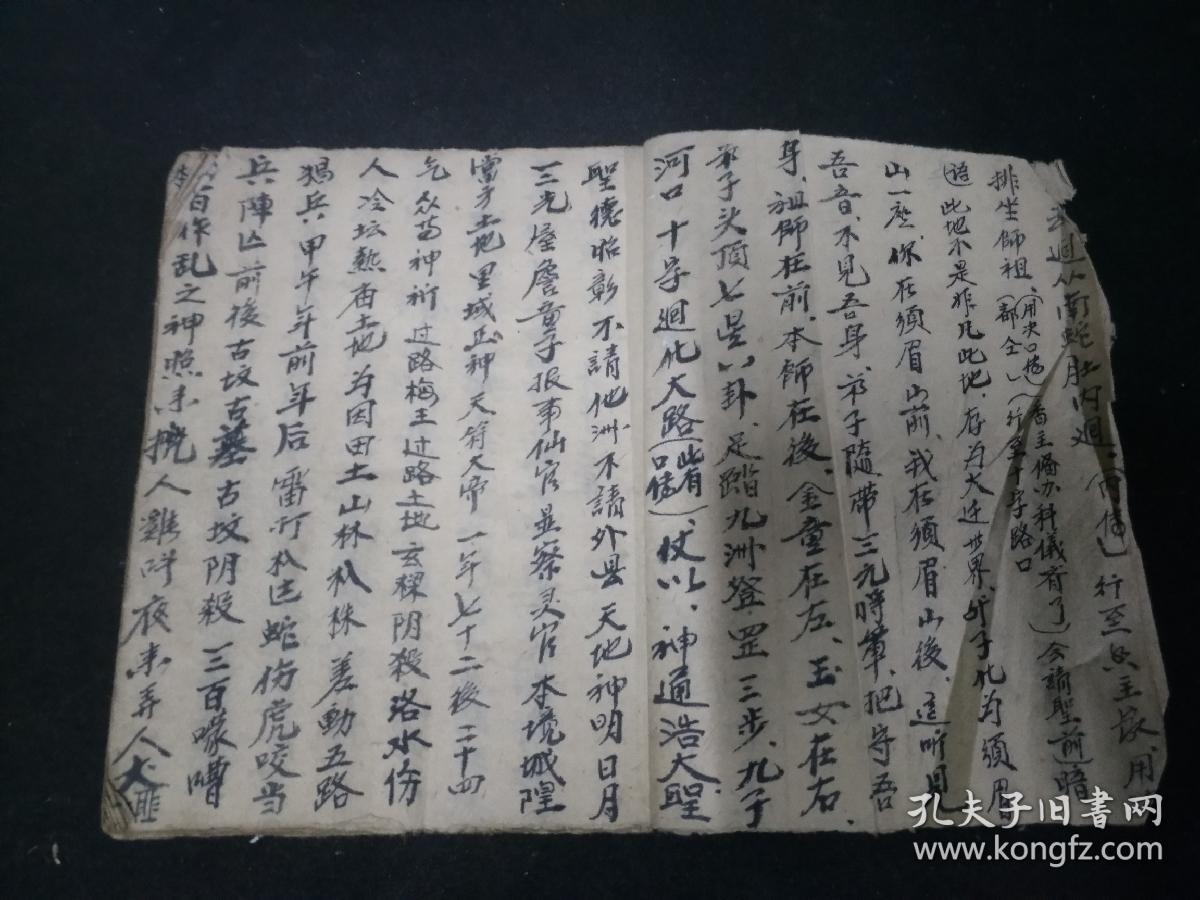 廻从南蛇肚内廻（內傳）行至良主家用
排坐師祖（用次口傳）（香主俻办科儀有了）今請聖前暗
（都全）（行至十字路口
語此地不是非凡此地存为大迁世界弟子化为須眉
山一座你在須眉山前我在須眉山後這听見
吾音不見吾身弟子隨帶三元將軍把守吾
身祖師在前本師在後金童在左玉女在右
弟子头頂七星八卦足踏九洲登罡三步九子
河口十字廻化大路（此有口傳）仗以神通浩大聖
聖德昭彰不請他洲不請外县天地神明日月
三光屋詹童子报事仙官並察灵官本境城隍
當方土地里域正神天符大帝一年七十二後二十四
气众苗神祈过路梅王过路土地玄樑阴殺洛水份
人冷坛熱庙土地为因田土山林杁株差動五路
猖兵甲午年前年后雷打杁匕蛇伤虎咬当
兵陣亾前後古坟古墓古坟阴殺三百嚎嘈
百作乱之神照未撓人雞呌夜未弄人大
孔夫子旧书网
www.kongfz.com